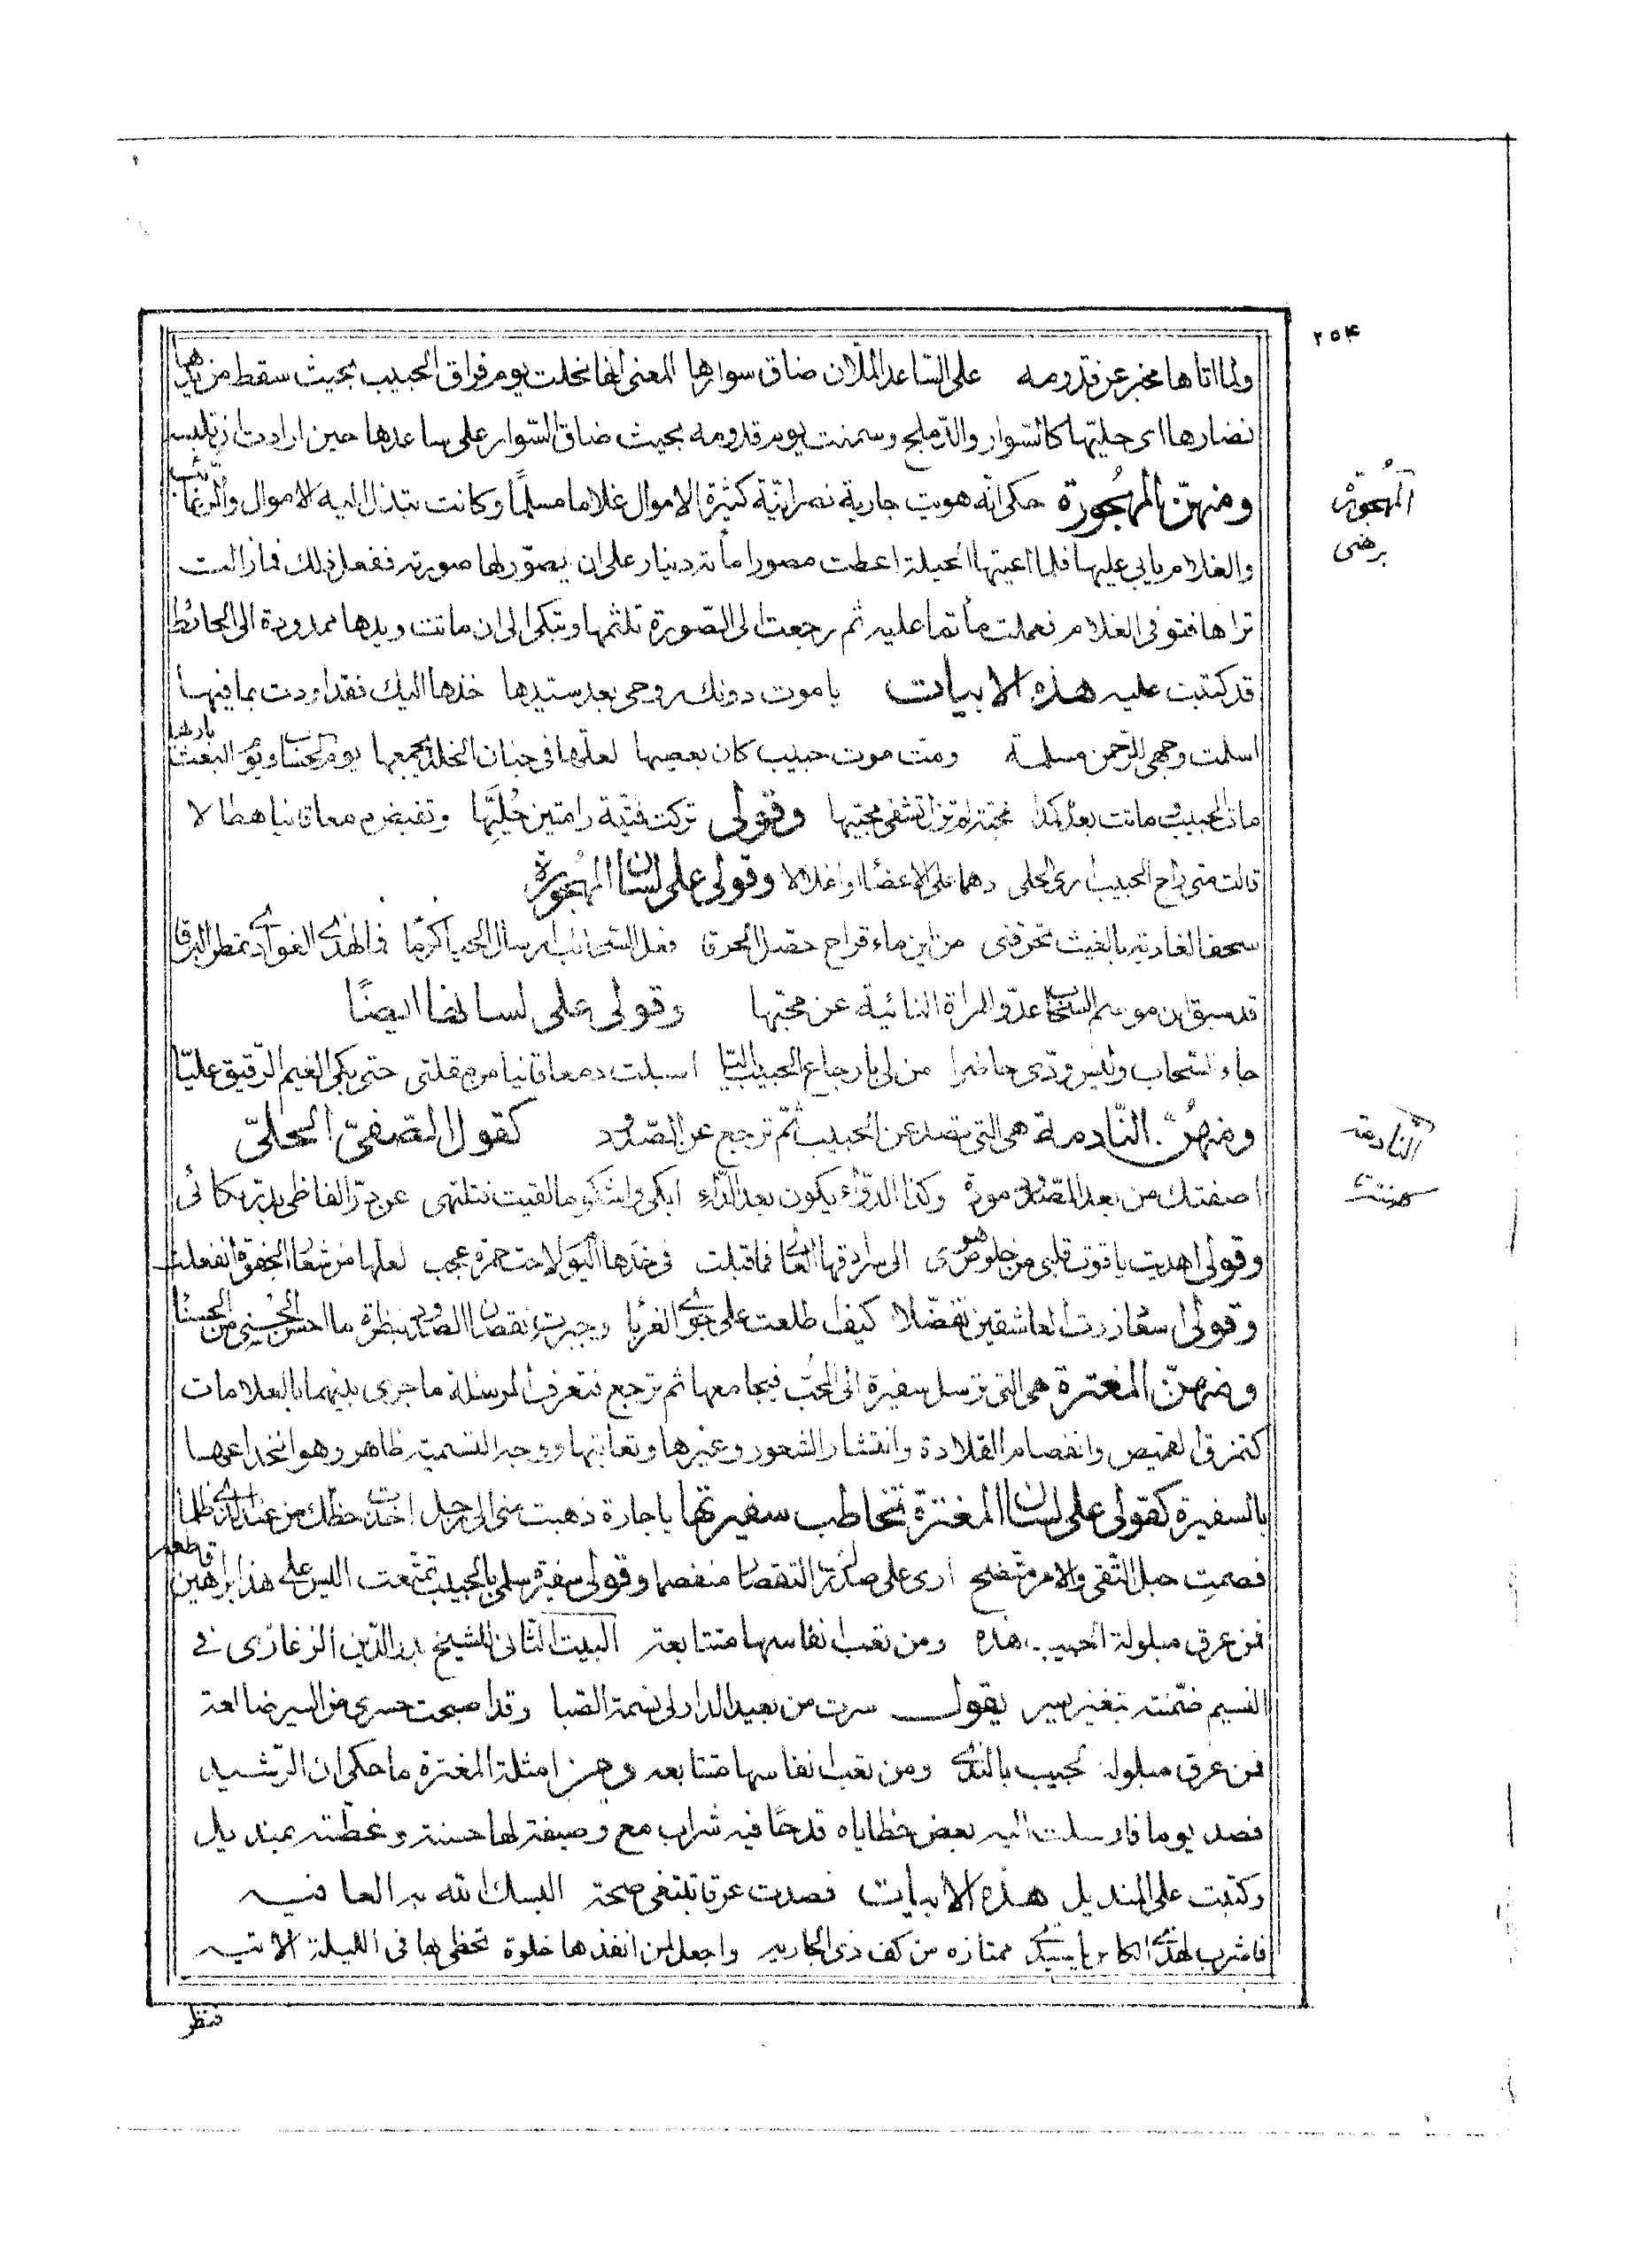 ٢٥٤
ولما اتاها مخبر عن قدومه على الساعد الملآن ضاق سوارها المعنى انها نحلت يوم فراق الحبيب بحيث سقط من يدها
نضارها اى حليتها كالسوار والدملج وسمنت يوم قدومه بحيث ضاق السّوار على ساعدها حين ارادت ان تلبسه
ومنهنّ المهجورة حكى انّه هويت جارية نصرانيّة كثيرة الاموال غلاما مسلمًا وكانت تبذل اليه الاموال والرغائب
المهجورة
برهنى
والغلام يابى عليها فلما اعيتها الحيلة اعطت مصورا مأته دينار على ان يصوّر لها صورته ففعل ذلك فما زالت
تراها فتوفى الغلام فعملت مأتما عليه ثم رجعت الى الصّورة تلثمها وتبكى الى ان ماتت ويدها ممدودة الى الحائط
قد كتبت عليه هذه الابيات يا موت دونك روحى بعد سيدها خذها اليك فقد اودت بما فيها
اسلمت وجهى للرّحمن مسلمة ومتّ موت حبيب كان يعصيها لعلّها فى جنان الخلد يجمعها يوم الحساب ويوم البعث باريها
مات الحبيب وماتت بعده كمدا محبّة لم تزل تشقى محبّيها وقولى تركت فتيّة رامتين حُليّها وتفيض دمعا قانيا هطالا
قالت متى راح الحبيب ارى الحلى دهما على الاعضاء او اغلالا وقولى على لسان المهجورة
سحقا لغادية بالغيث تحرقنى من اين ماء قراح حصل الحرق فعل السحائب ارسال الحيا كرما فما لهذى الغوادى تمطر البرقا
قد سبق ان موسم السحاب عدوّ المرأة النائية عن محبّها وقولى على لسانها ايضًا
جاء السّحاب وليس ودّى حاضرا من لى بارجاع الحبيب اليّا اسبلت دمعا قانيا من مقلتى حتى بكى الغيم الرّقيق عليّا
ومنهنّ النّادمة هى التى تصد عن الحبيب ثمّ ترجع عن الصّدود كقول الصّفىّ الحلىّ
النادمة
اصفتك من بعد الصّدود مودة وكذا الدّواء يكون بعد الدّاء ابكى واشكو ما لقيت فتلتهى عن درّ الفاظى بدرّ بكائى
وقولى اهديت ياقوت قلبى من خلوص هوى الى سرادقها العالى فما قبلت فى خدّها اليوم لاحت حمرة عجب لعلّها من شعاع الخفقه انفعلت
وقولى اسعاد زرت العاشقين تفضّلا كيف طلعت على جوى الغربا وجبرت نقصان الصّدود بنظرة ما احسن الحسنى من الحسنا
ومنهنّ المغترة هى التى ترسل سفيرة الى المحبّ فيجامعها ثم ترجع فتعرف المرسلة ما جرى بينهما بالعلامات
كتمزق القميص وانفصام القلادة وانتشار الشعور وغيرها وتعاتبها ووجه التسمية ظاهر وهو انخداعها
بالسفيرة كقولى على لسان المغترة تخاطب سفيرتها يا جارة ذهبت منى الى رجل اخذت حظّك من عند الذى ظلما
فصمتِ حبل التّقى والامر متّضح ارى على صدرك التقصار منفصما وقولى سفيرة سلمى بالحبيب تمتّعت اليس على هذا براهين قاطعه
فمن عرق مبلولة الجيب هذه ومن تعب انفاسها متتابعة البيت الثانى للشيخ بدر الدّين الزغارى فى
النسيم ضمّنته بتغيير يسير يقول سرت من بعيد الدار لى نسمة الصّبا وقد اصبحت حسرى من السير ضالعة
فمن عرق مبلولة الجيب بالندى ومن تعب انفاسها متتابعه ومن امثلة المغترة ما حكى ان الرّشيد
فصد يوما فارسلت اليه بعض حظاياه قدحًا فيه شراب مع وصيفة لها حسنة وغطّته بمنديل
وكتبت على المنديل هذه الابيات فصدت عرقا تبتغى صحة البسك الله به العافيه
فاشرب لهذا الكاس يا سيّدى ممتازه من كف ذى الجاريه واجعل لمن انفذها خلوة تحظى بها فى الليلة الاتيه
فنظر